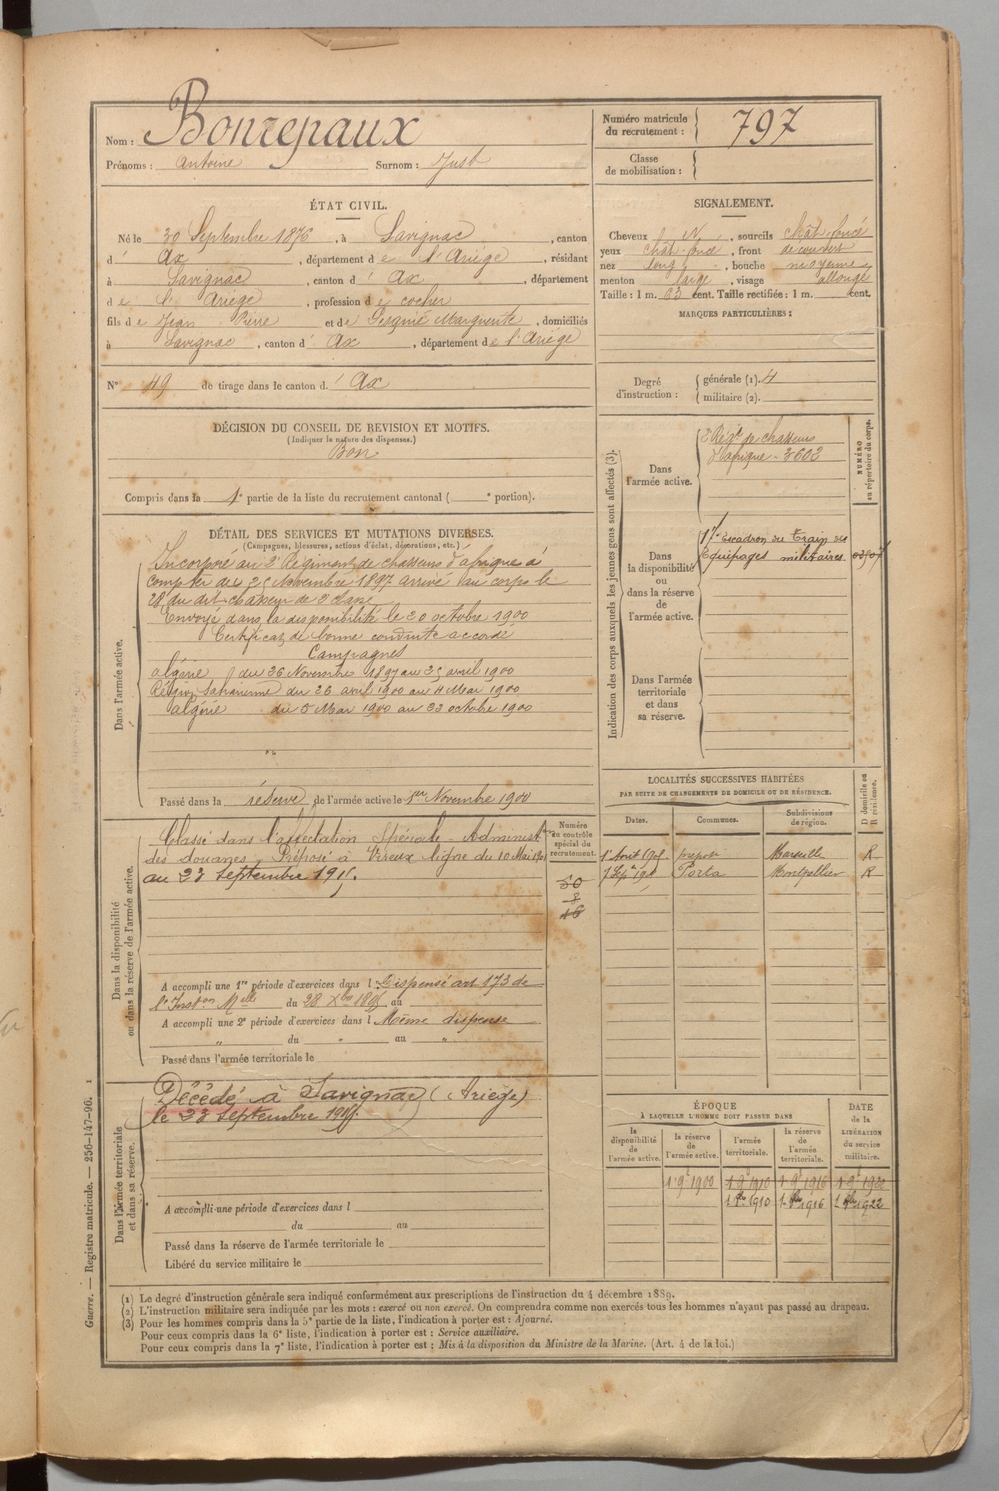 Nom : Bonrepaux
Prénoms : Antoine Surnom : Just
Numéro matricule du recrutement : 797
Classe de mobilisation :
ÉTAT CIVIL.
Né le 30 Septembre 1876, à Savignac, canton
d' Ax, département de l'Ariège, résidant
à Savignac, canton d' Ax, département
de l'Ariège, profession de cocher
fils de Jean Pierre et de Marguerite, domiciliés
à Savignac, canton d' Ax, département de l'Ariège
N° 49 de tirage dans le canton d' Ax
SIGNALEMENT.
Cheveux N, sourcils chât. foncé
yeux chât. foncé, front découvert
nez long, bouche moyenne
menton large, visage allongé
Taille : 1 m. 63 cent. Taille rectifiée : 1 m. cent.
MARQUES PARTICULIÈRES :
Degré d'instruction : générale (1). 4
militaire (2).
DÉCISION DU CONSEIL DE REVISION ET MOTIFS.
(Indiquer la nature des dispenses.)
Bon
Compris dans la 1e partie de la liste du recrutement cantonal ( e portion).
DÉTAIL DES SERVICES ET MUTATIONS DIVERSES.
(Campagnes, blessures, actions d'éclat, décorations, etc.)
Dans l'armée active.
Incorporé au 2e Régiment de chasseurs d'afrique à
compter du 25 Novembre 1897 arrivé au corps le
28 du dit chasseur de 2e classe
Envoyé dans la disponibilité le 20 octobre 1900
Certificat de bonne conduite accordé
Campagnes
algérie du 26 Novembre 1897 au 25 avril 1900
Région Saharienne du 26 avril 1900 au 4 Mai 1900
algérie du 5 Mai 1900 au 23 octobre 1900
Passé dans la réserve de l'armée active le 1er Novembre 1900
Indication des corps auxquels les jeunes gens sont affectés (3).
NUMÉRO au répertoire du corps.
Dans l'armée active.
2 Régt de chasseurs
d'afrique - 3602
Dans la disponibilité ou dans la réserve de l'armée active.
17e Escadron du Train des
Equipages militaires
Dans l'armée territoriale et dans sa réserve.
Dans la disponibilité ou dans la réserve de l'armée active.
Classé dans l'affectation Spéciale - Administ
des douanes, Préposé à Vireux ligne du 10 Mai
au 23 septembre
Numéro au contrôle spécial du recrutement.
50
8
46
A accompli une 1re période d'exercices dans l Dispensé art 173 de
l'Inston Mlle du 28 Xbre 1895 au
A accompli une 2e période d'exercices dans l Même dispense
" du " au "
Passé dans l'armée territoriale le
LOCALITÉS SUCCESSIVES HABITÉES
PAR SUITE DE CHANGEMENTS DE DOMICILE OU DE RÉSIDENCE.
Dates. Communes. Subdivisions de région. D domicile ou R résidence.
1er Août Marseille R
7 Sept Porta Montpellier R
Dans l'armée territoriale et dans sa réserve.
Décédé à Savignac (Ariège)
le 23 septembre
A accompli une période d'exercices dans l
du au
Passé dans la réserve de l'armée territoriale le
Libéré du service militaire le
ÉPOQUE
À LAQUELLE L'HOMME DOIT PASSER DANS
la disponibilité de l'armée active. la réserve de l'armée active. l'armée territoriale. la réserve de l'armée territoriale.
DATE de la LIBÉRATION du service militaire.
1 9 1900 1 9 1910 1 9 1916 1 9 1922
1 8bre 1910 1 8bre 1916 1 8bre 1922
(1) Le degré d'instruction générale sera indiqué conformément aux prescriptions de l'instruction du 4 décembre 1889.
(2) L'instruction militaire sera indiquée par les mots : exercé ou non exercé. On comprendra comme non exercés tous les hommes n'ayant pas passé au drapeau.
(3) Pour les hommes compris dans la 5e partie de la liste, l'indication à porter est : Ajourné.
Pour ceux compris dans la 6e liste, l'indication à porter est : Service auxiliaire.
Pour ceux compris dans la 7e liste, l'indication à porter est : Mis à la disposition du Ministre de la Marine. (Art. 4 de la loi.)
Guerre. — Registre matricule. — 256-147-96. 1